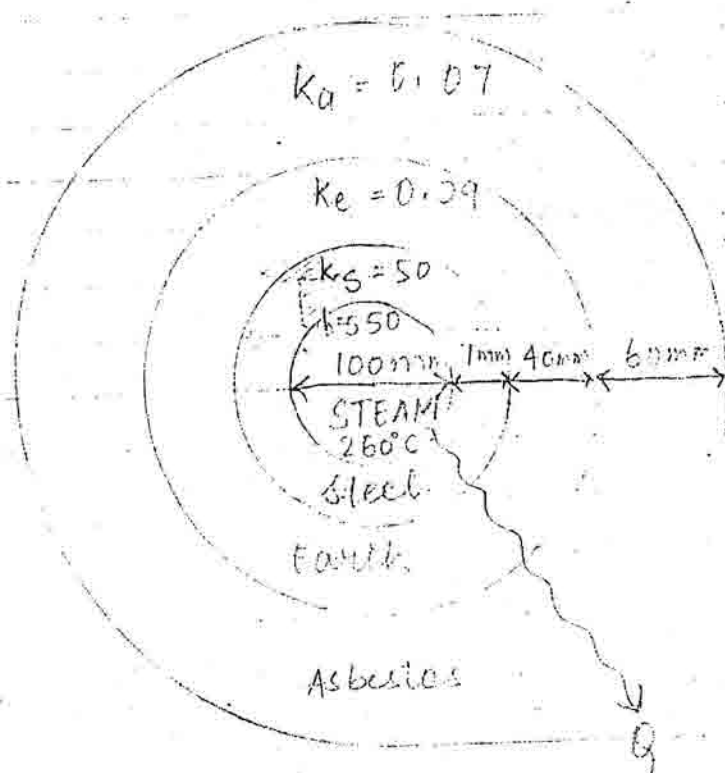 Ka = 0.07
Ke = 0.09
Ks = 50
h=550
100mm 7mm 40mm 60mm
STEAM
260°C
Steel
Earth
Asbestos
Q